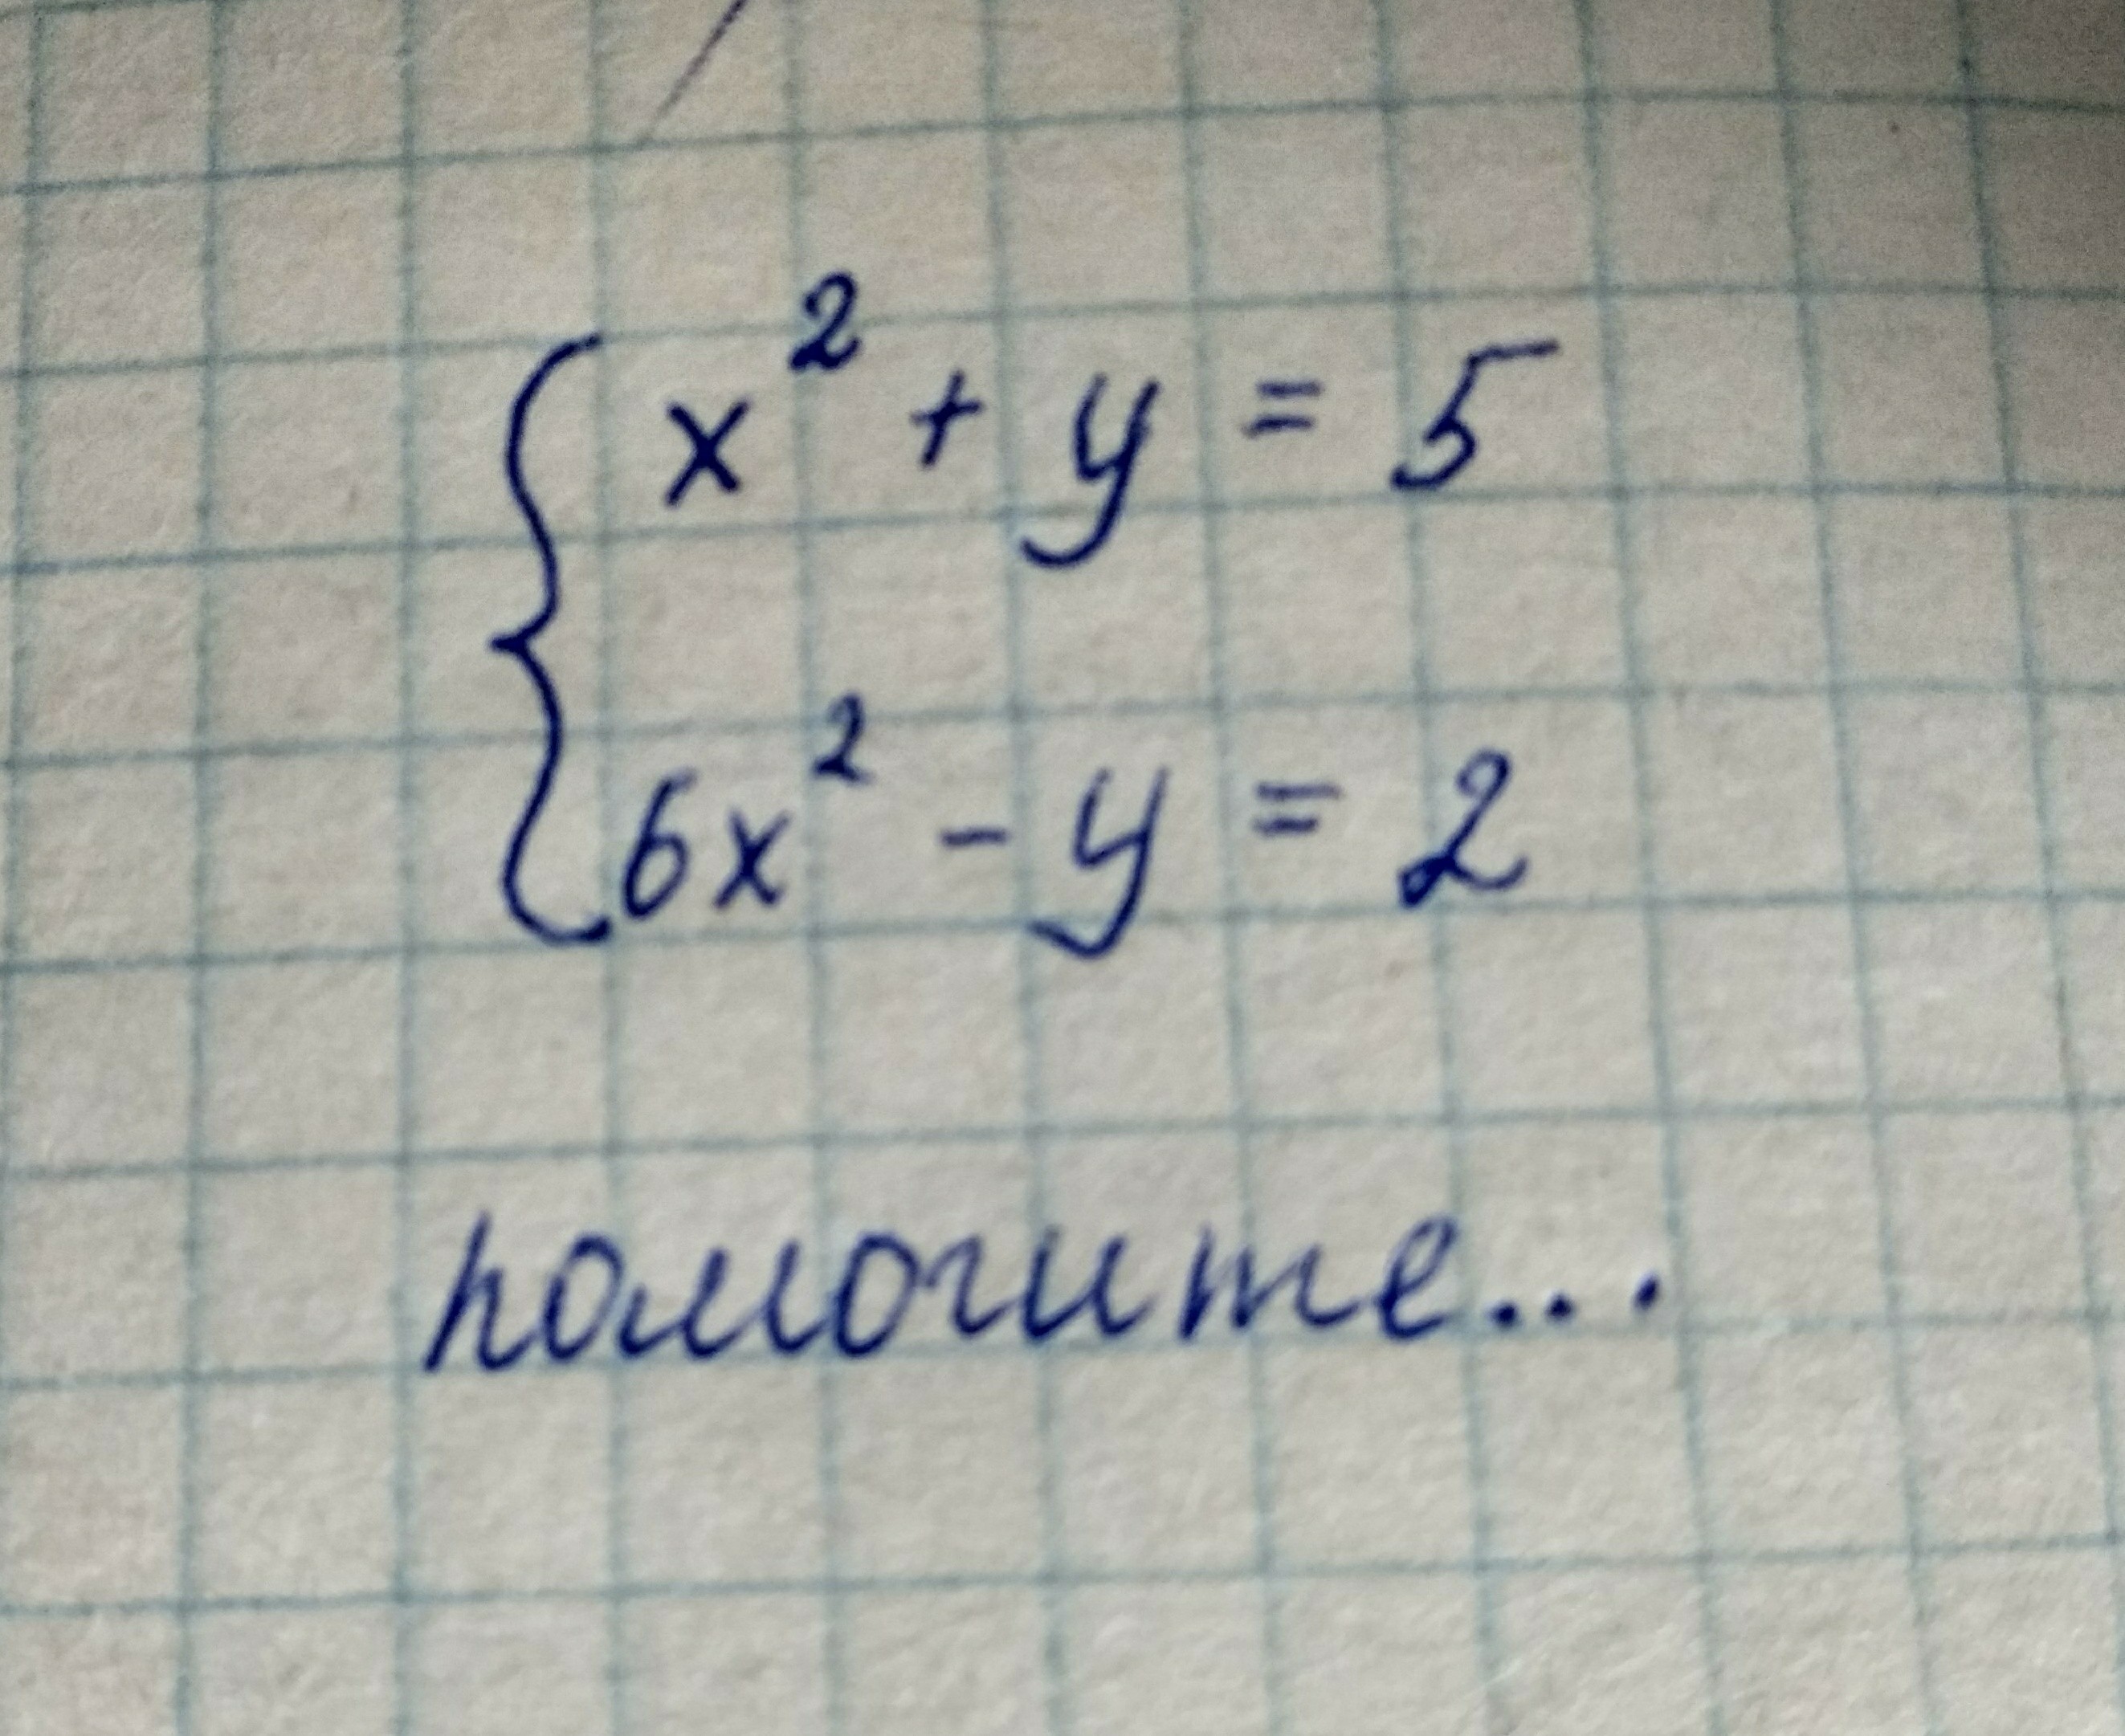 x² + y = 5
6x² - y = 2
помогите...